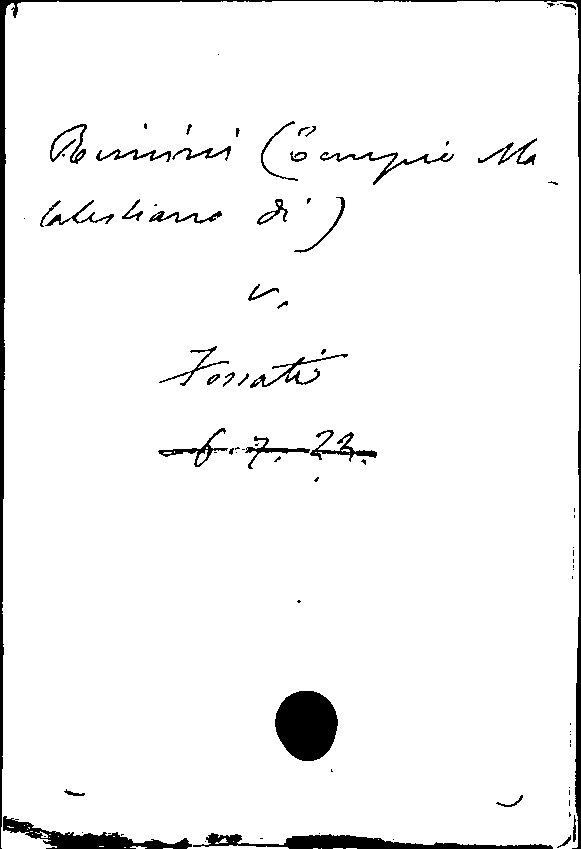 Rimini (Tempio Ma-
latestiano di)
v.
Fossati
6.7.22.